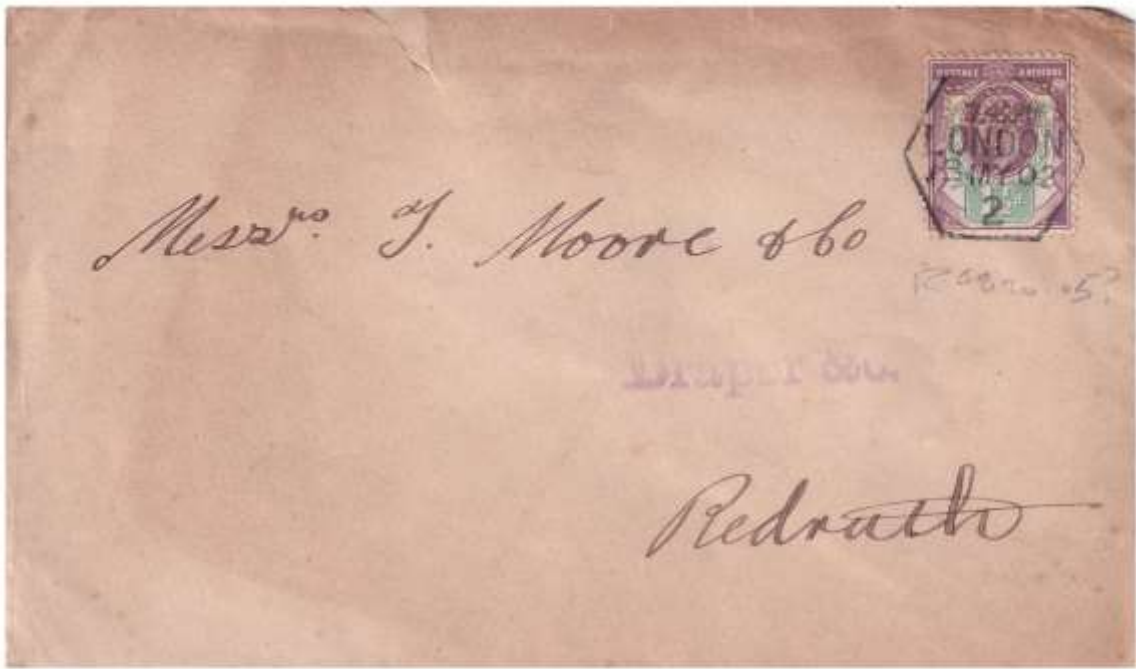 POSTAGE & REVENUE
LONDON
MY 02
2
Messrs. T. Moore & Co
Draper &c.
Redruth